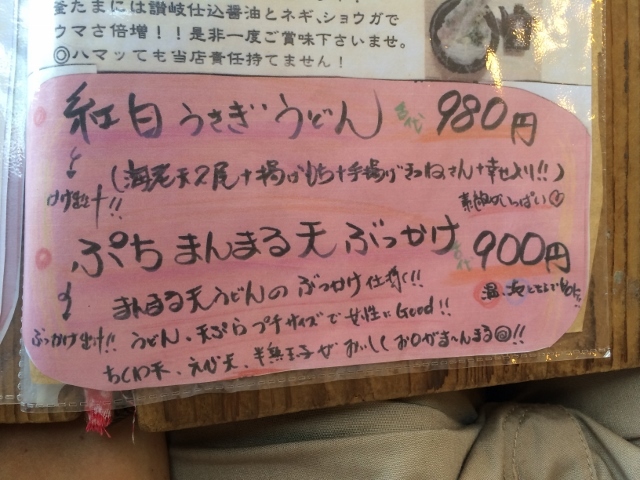 釜たまには讃岐仕込醤油とネギ、ショウガで
ウマさ倍増!!是非一度ご賞味下さいませ。
◎ハマッても当店責任持てません!
紅白うさぎうどん 980円
(海老天2尾+揚げもち+手揚げきつねさん+幸せ入り!!)
かけ出汁!! いっぱい
ぷちまんまる天ぶっかけ 900円
まんまる天うどんのぶっかけ仕様!!
ぶっかけ出汁!! うどん、天ぷらプチサイズで女性にGood!!
ちくわ天、えび天、半熟玉子がおいしくお口がま〜んまる◎!!